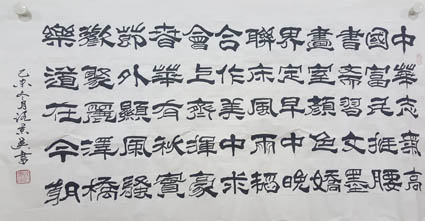 中華志氣高
國富民挺腰
書齋習文墨
畫室顏色嬌
界定早中晚
聯床風雨韜
合作美中求
會上齊揮豪
春華有秋實
外顯風騷
歡聚麗澤橋
樂道在今朝
乙未月書